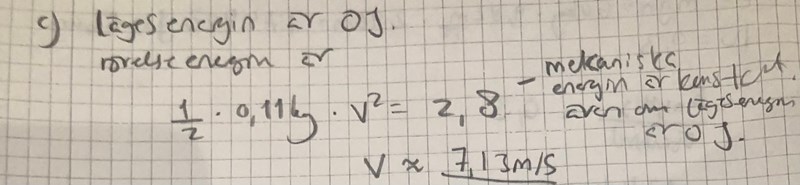 c) lägesenergin är 0J.
rörelseenergin är
1/2 · 0,11kg · v² = 2,8
- mekaniska
energin är konstant.
även om lägesenergin
är 0 J.
v ≈ 7,13m/s